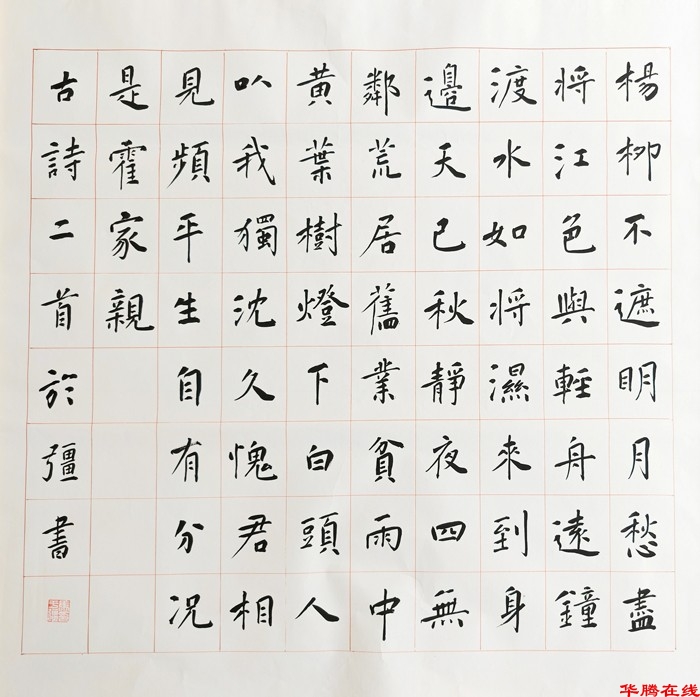 楊柳不遮明月愁盡
將江色與輕舟遠鐘
渡水如將濕來到身
邊天已秋靜夜四無
鄰荒居舊業貧雨中
黃葉樹燈下白頭人
以我獨沈久愧君相
見頻平生自有分况
是霍家親
古詩二首於彊書
华腾在线